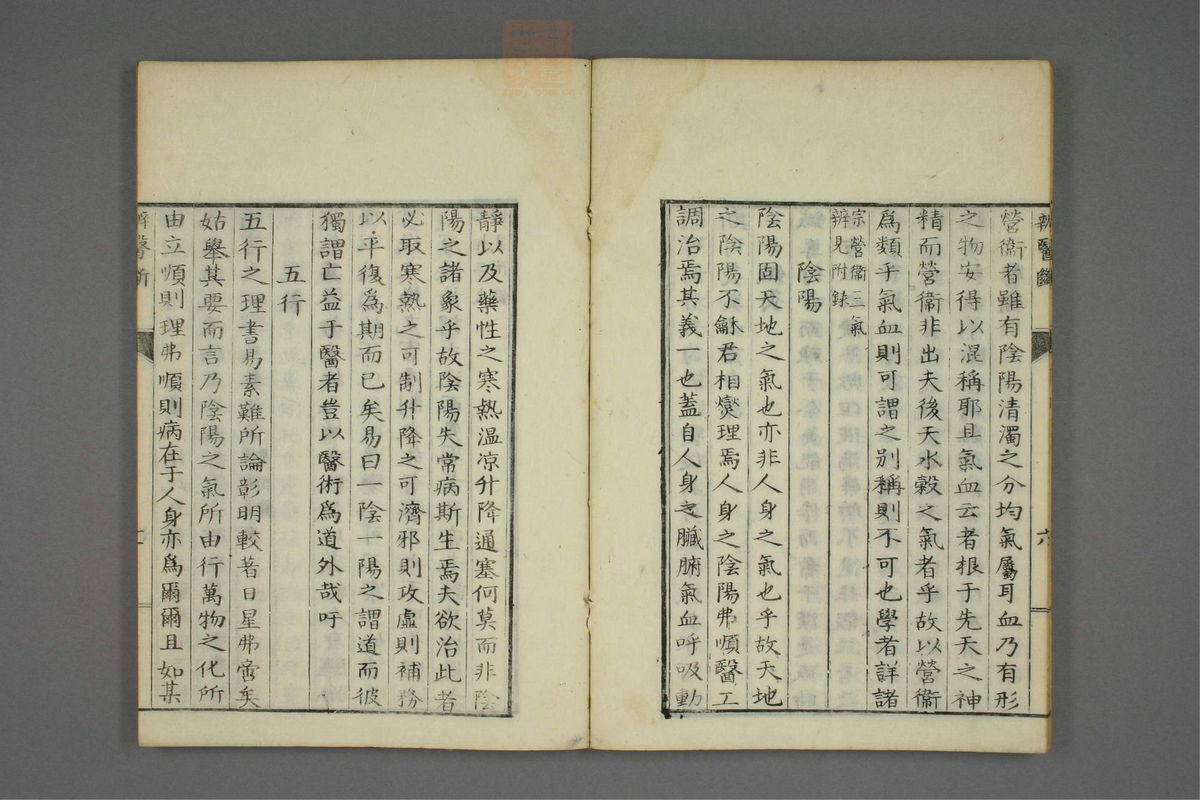 辨醫斷
六
營衞者雖有陰陽清濁之分均氣屬耳血乃有形
之物安得以混稱耶且氣血云者根于先天之神
精而營衞非出夫後天水穀之氣者乎故以營衞
爲類乎氣血則可謂之别稱則不可也學者詳諸
宗營衞三氣
辨見附錄
陰陽
陰陽固天地之氣也亦非人身之氣也乎故天地
之陰陽不龢君相燮理焉人身之陰陽弗順醫工
調治焉其義一也蓋自人身之臟腑氣血呼吸動
靜以及藥性之寒熱温凉升降通塞何莫而非陰
陽之諸象乎故陰陽失常病斯生焉夫欲治此者
必取寒熱之可制升降之可濟邪則攻虛則補務
以平復爲期而已矣易曰一陰一陽之謂道而彼
獨謂亡益于醫者豈以醫術爲道外哉吁
五行
五行之理書易素難所論彰明較著日星弗啻矣
姑舉其要而言乃陰陽之氣所由行萬物之化所
由立順則理弗順則病在于人身亦爲爾爾且如某
辨醫斷